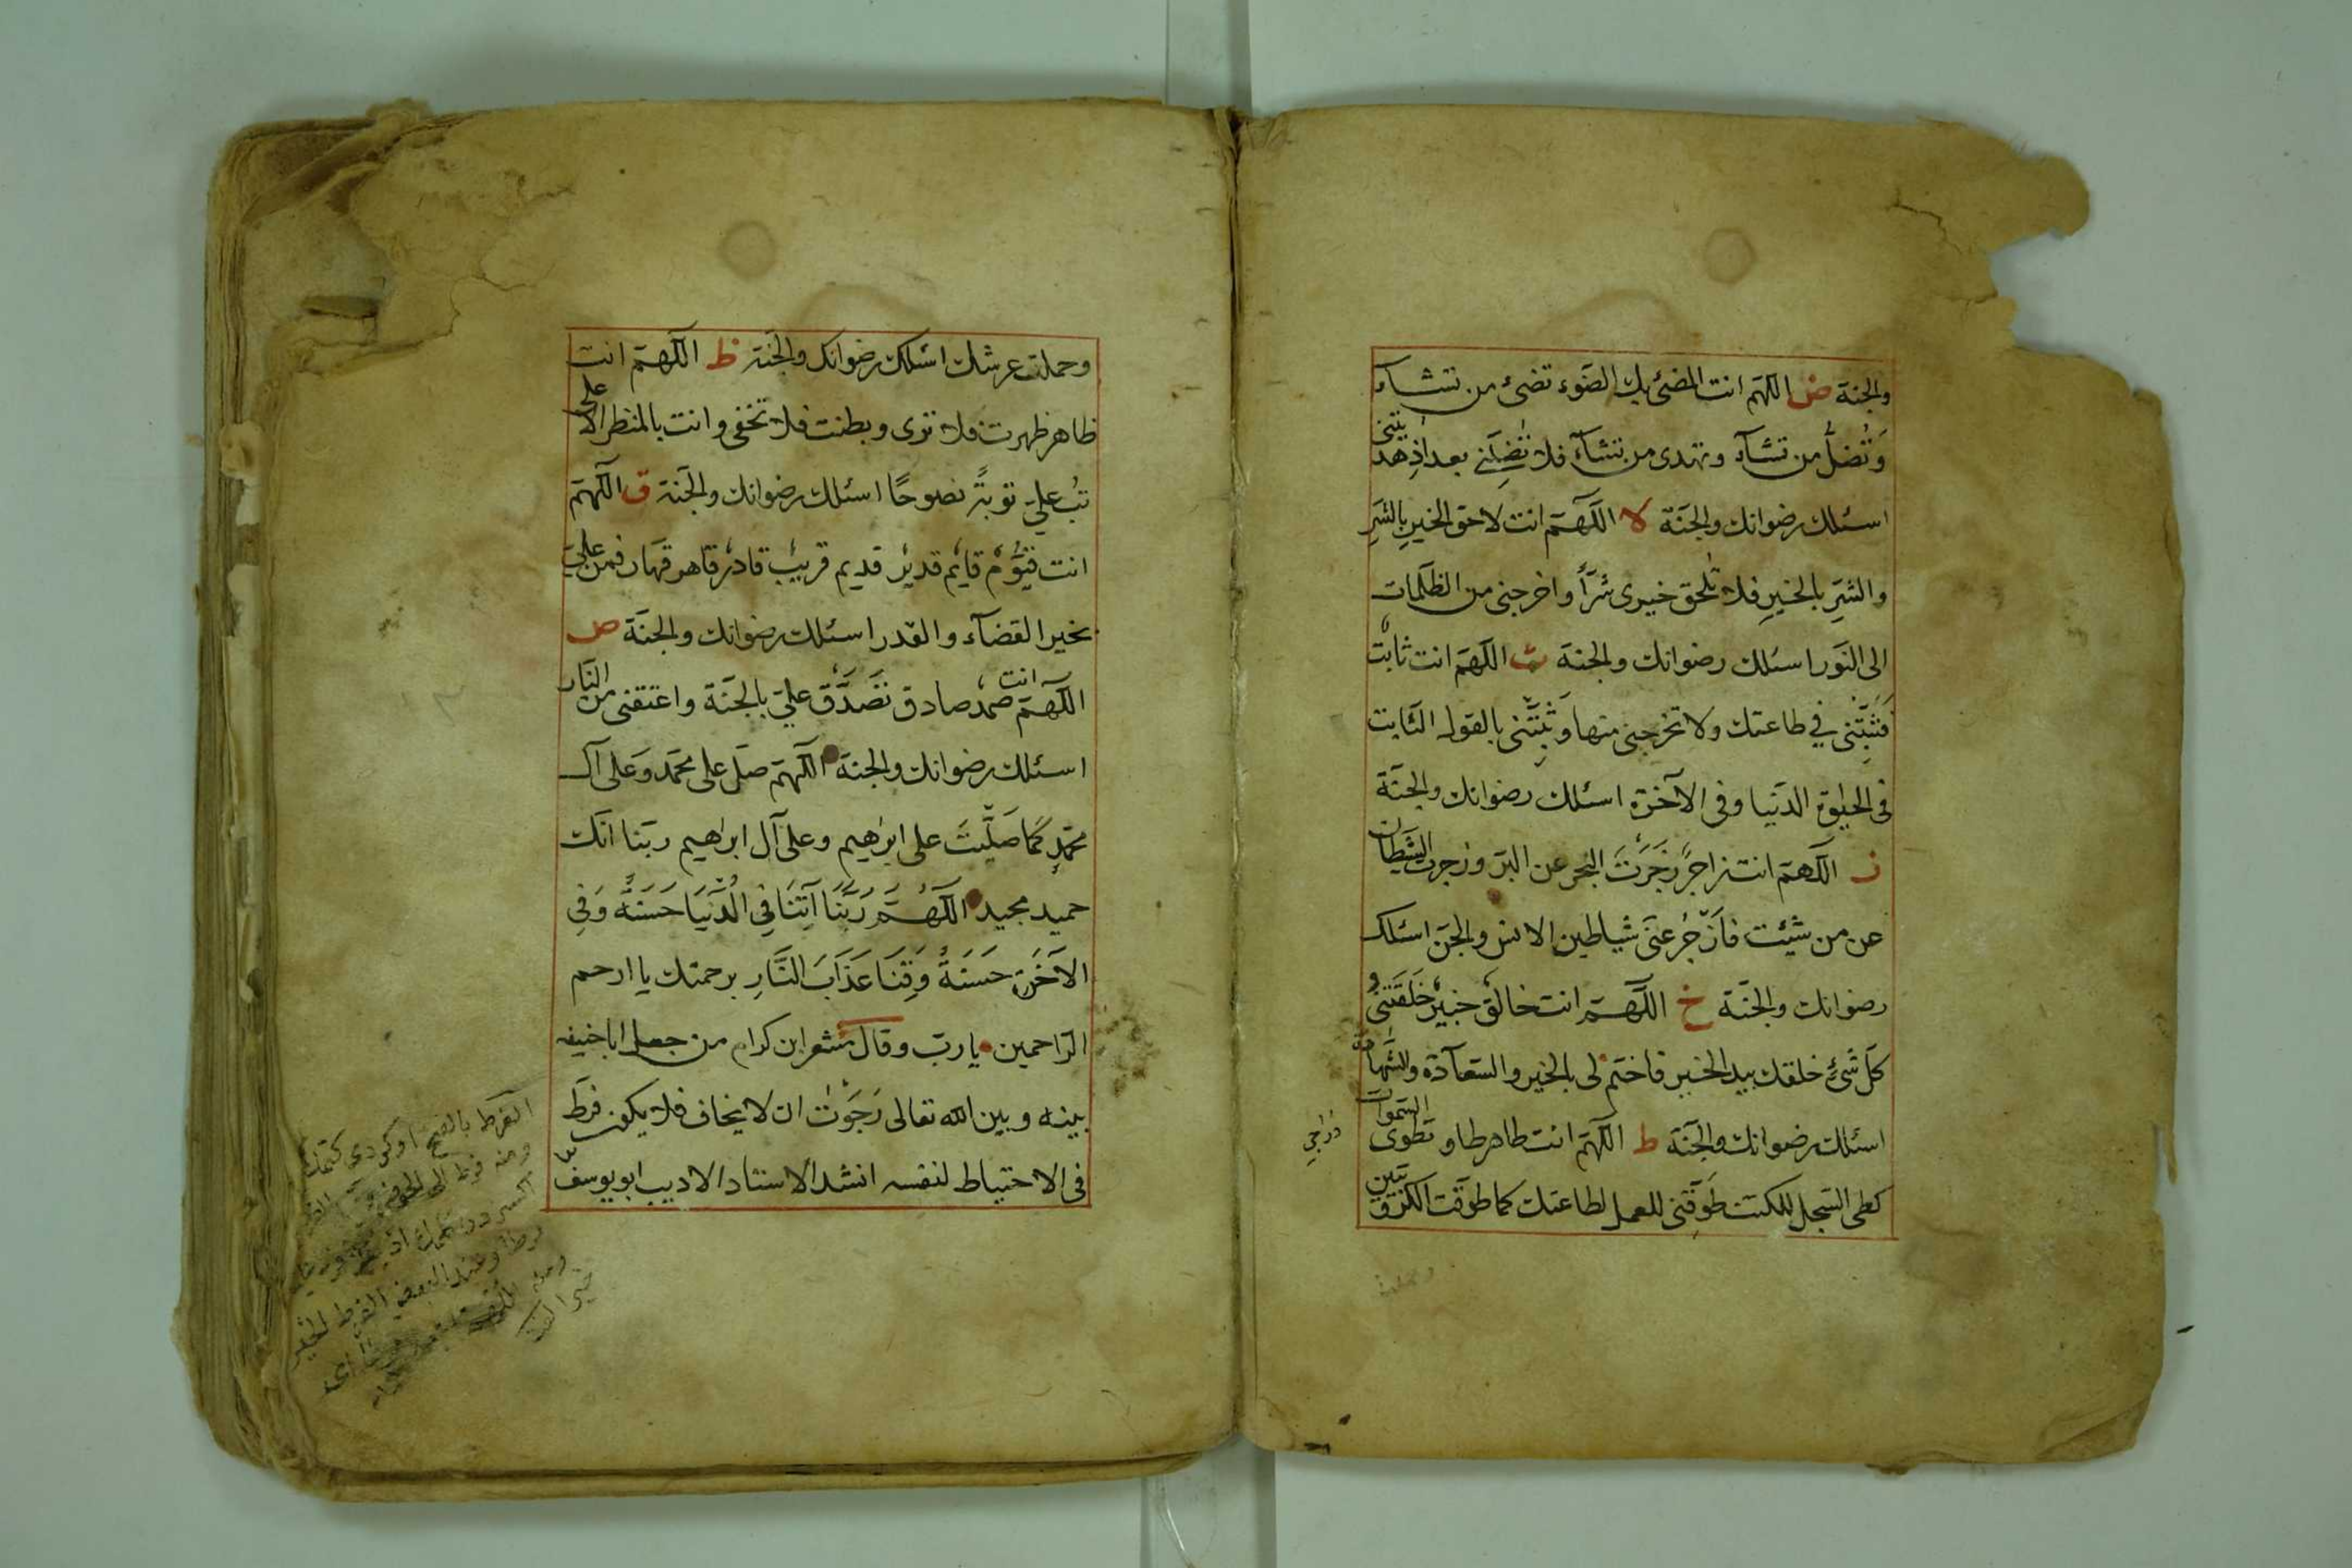 والجنة ض اللهم انت المضئ بك الضوء تضئ من تشآء
وَتُضلُّ من تشآء وتهدى من تشآء فلا تُضِلَّنِي بعد اذِ هديتنى
اسئلك رضوانك والجنّة لا اللّهمّ انت لاحق الخيرِ بالشرِّ
والشرِّ بالخيرِ فلا تُلحق خيرى شرّاً واخرجنى من الظلمات
الى النّور اسئلك رضوانك والجنة ث اللهمّ انت ثابتٌ
فَثَبِّتْنى في طاعتك ولا تخرجنى منها وَثَبِّتْنى بالقول الثابت
فى الحيٰوة الدّنيا وفى الآخرة اسئلك رضوانك والجنّة
ز اللّهمّ انت زاجرٌ زَجَرْتَ البحر عن البرّ وزجرت الشيطان
عن من شئت فَازْجُر عنّى شياطين الانس والجنّ اسئلك
رضوانك والجنّة خ اللّهمّ انت خالقٌ خبيرٌ خَلَقْتَنى و
كلّ شَئٍ خلقك بيدك الخير فاختم لى بالخير والسّعآدة والشّهادة
اسئلك رضوانك والجنّة ط اللّهمّ انت طاهر طاو تطوى السّموات
كطى السّجل للكتب طَوِّقنى للعمل لطاعتك كما طوّقت الكرّوبيّين
وحملت عرشك اسئلك رضوانك والجنّة ظ اللّهمّ انت
ظاهر ظهرت فلا ترى وبطنت فلا تخفى وانت بالمنظر الاعلى
تُب علىّ توبةً نصوحًا اسئلك رضوانك والجنّة ق اللّهمّ
انت قيّومٌ قايمٌ قديرٌ قديم قريبٌ قادرٌ قاهر قهّار فمن علىّ
بخير القضآء والقدر اسئلك رضوانك والجنّة ص
اللّهمّ انت صمدٌ صادق تَصَدَّق علىّ بالجنّة واعتقنى من النّار
اسئلك رضوانك والجنة اللّهمّ صلّ على محمّد وَعلى آل
محمّدٍ كَمَا صَلَّيْتَ على ابرٰهيم وعلى آل ابرٰهيم ربّنا انّك
حميد مجيد اللّهُمَّ رَبَّنَا آتِنَا فِي الدُّنْيَا حَسَنَةً وَفِي
الآخَرةِ حَسَنَةً وَقِنَا عَذَابَ النَّارِ برحمتك يا ارحم
الرّاحمين يا ربّ وقال مسْعر ابن كدام من جعل ابا حنيفه
بينه وبين الله تعالى رَجَوْتُ ان لا يخاف فلا يكون فرّط
فى الاحتياط لنفسه انشد الاستاد الاديب ابو يوسف